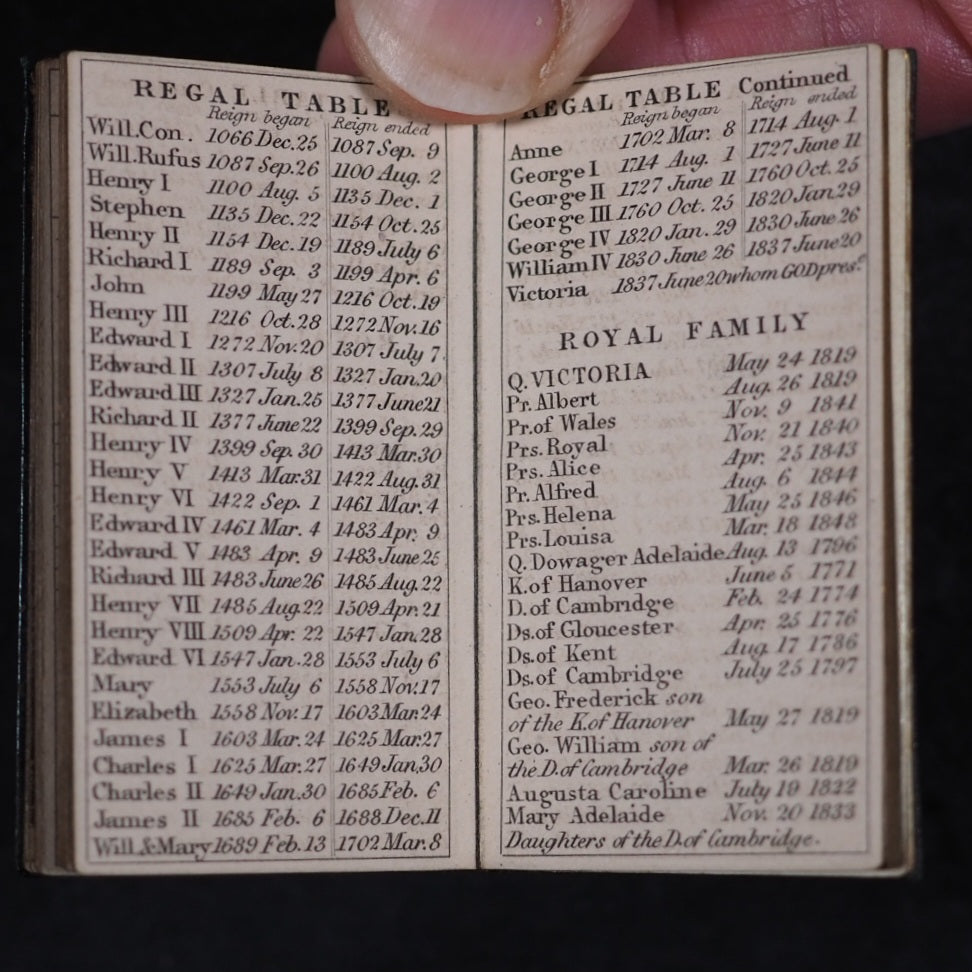 REGAL TABLE
Reign began Reign ended
Will.Con. 1066 Dec.25 1087 Sep. 9
Will.Rufus 1087 Sep.26 1100 Aug. 2
Henry I 1100 Aug. 5 1135 Dec. 1
Stephen 1135 Dec. 22 1154 Oct.25
Henry II 1154 Dec.19 1189 July 6
Richard I 1189 Sep. 3 1199 Apr. 6
John 1199 May 27 1216 Oct.19
Henry III 1216 Oct.28 1272 Nov.16
Edward I 1272 Nov.20 1307 July 7
Edward II 1307 July 8 1327 Jan.20
Edward III 1327 Jan.25 1377 June21
Richard II 1377 June22 1399 Sep.29
Henry IV 1399 Sep. 30 1413 Mar.30
Henry V 1413 Mar.31 1422 Aug.31
Henry VI 1422 Sep. 1 1461 Mar.4
Edward IV 1461 Mar. 4 1483 Apr. 9
Edward V 1483 Apr. 9 1483 June25
Richard III 1483 June26 1485 Aug.22
Henry VII 1485 Aug.22 1509 Apr.21
Henry VIII 1509 Apr. 22 1547 Jan.28
Edward VI 1547 Jan.28 1553 July 6
Mary 1553 July 6 1558 Nov.17
Elizabeth 1558 Nov.17 1603 Mar.24
James I 1603 Mar.24 1625 Mar.27
Charles I 1625 Mar.27 1649 Jan.30
Charles II 1649 Jan.30 1685 Feb. 6
James II 1685 Feb. 6 1688 Dec.11
Will.& Mary 1689 Feb.13 1702 Mar.8
REGAL TABLE Continued
Reign began Reign ended
Anne 1702 Mar. 8 1714 Aug. 1
George I 1714 Aug. 1 1727 June 11
George II 1727 June 11 1760 Oct. 25
George III 1760 Oct. 25 1820 Jan.29
George IV 1820 Jan. 29 1830 June 26
William IV 1830 June 26 1837 June20
Victoria 1837 June20 whom GOD pres.e
ROYAL FAMILY
Q.VICTORIA May 24 1819
Pr. Albert Aug. 26 1819
Pr. of Wales Nov. 9 1841
Prs. Royal Nov. 21 1840
Prs. Alice Apr. 25 1843
Pr. Alfred Aug. 6 1844
Prs. Helena May 25 1846
Prs. Louisa Mar. 18 1848
Q. Dowager Adelaide Aug. 13 1796
K. of Hanover June 5 1771
D. of Cambridge Feb. 24 1774
Ds. of Gloucester Apr. 25 1776
Ds. of Kent Aug. 17 1786
Ds. of Cambridge July 25 1797
Geo. Frederick son
of the K.of Hanover May 27 1819
Geo. William son of
the D.of Cambridge Mar. 26 1819
Augusta Caroline July 19 1822
Mary Adelaide Nov. 20 1833
Daughters of the D.of Cambridge.